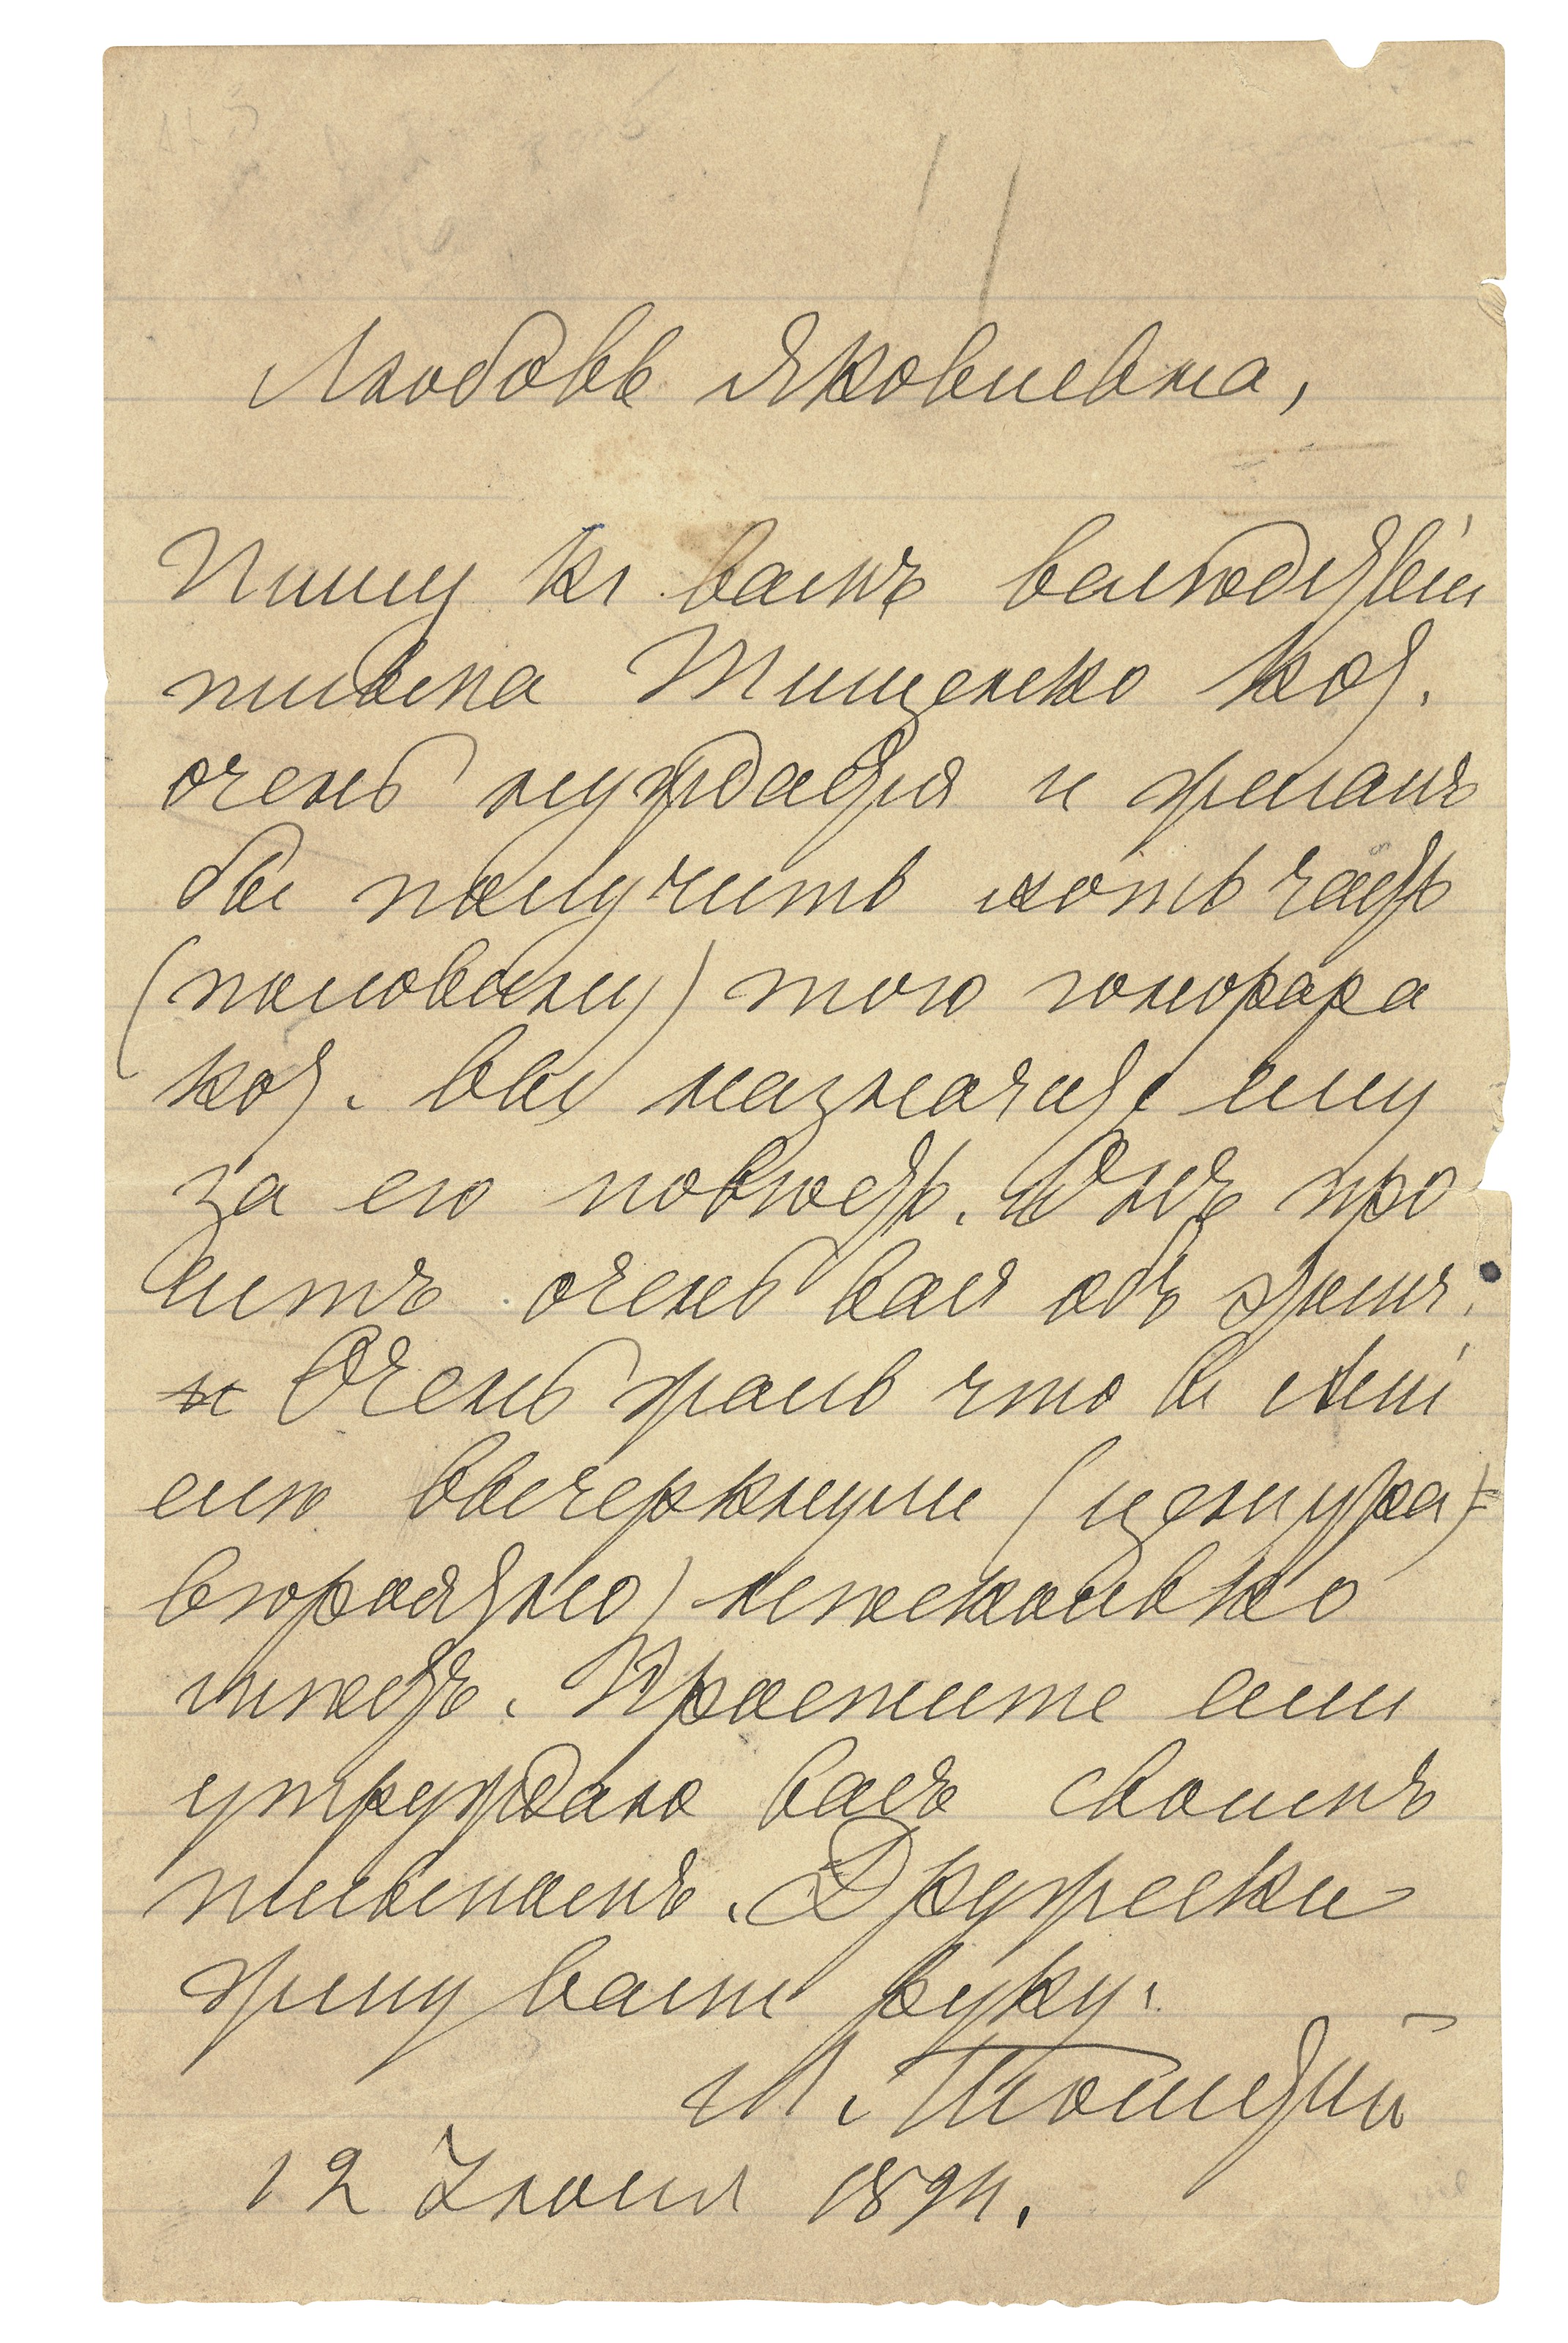 Любовь Яковлевна,
Пишу къ вамъ вслѣдствіи
письма Тищенко кот.
очень нуждается и желалъ
бы получить хоть часть
(половину) того гонорара
кот. вы назначите ему
за его повѣсть. Онъ про
ситъ очень васъ объ этомъ.
Очень жаль что въ
его вычеркнули (цензура
вѣроятно) нѣсколько
мѣстъ. Простите если
утруждаю васъ своимъ
письмомъ. Дружески
жму вашу руку.
Л. Толстой
12 Іюня 1894.